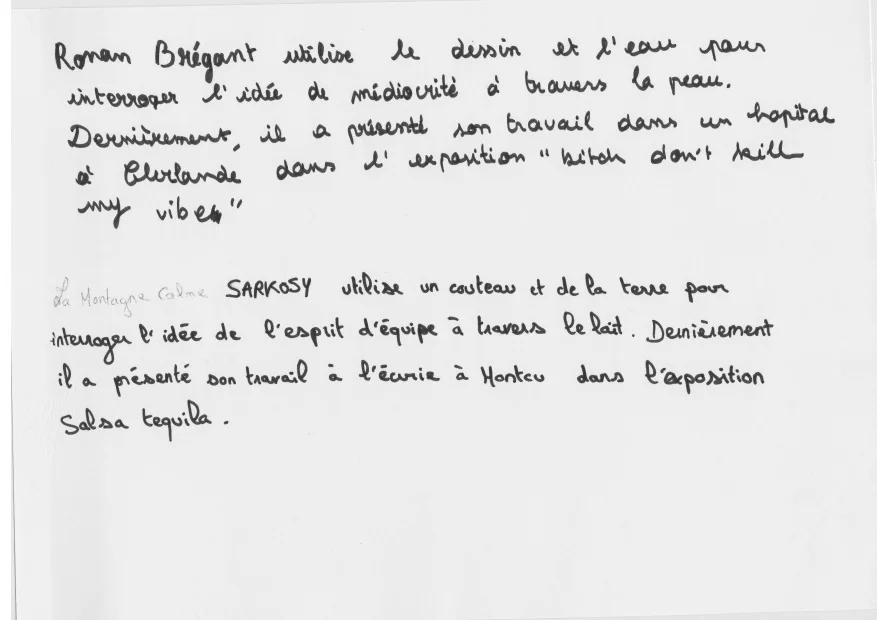 Ronan Brégant utilise le dessin et l'eau pour
interroger l'idée de médiocrité à travers la peau.
Dernièrement, il a présenté son travail dans un hopital
à dans l'exposition "bitch don't kill
my vibe"
La Montagne Calme SARKOSY utilise un couteau et de la terre pour
interroger l'idée de l'esprit d'équipe à travers le lait. Dernièrement
il a présenté son travail à l'écurie à dans l'exposition
Salsa tequila.